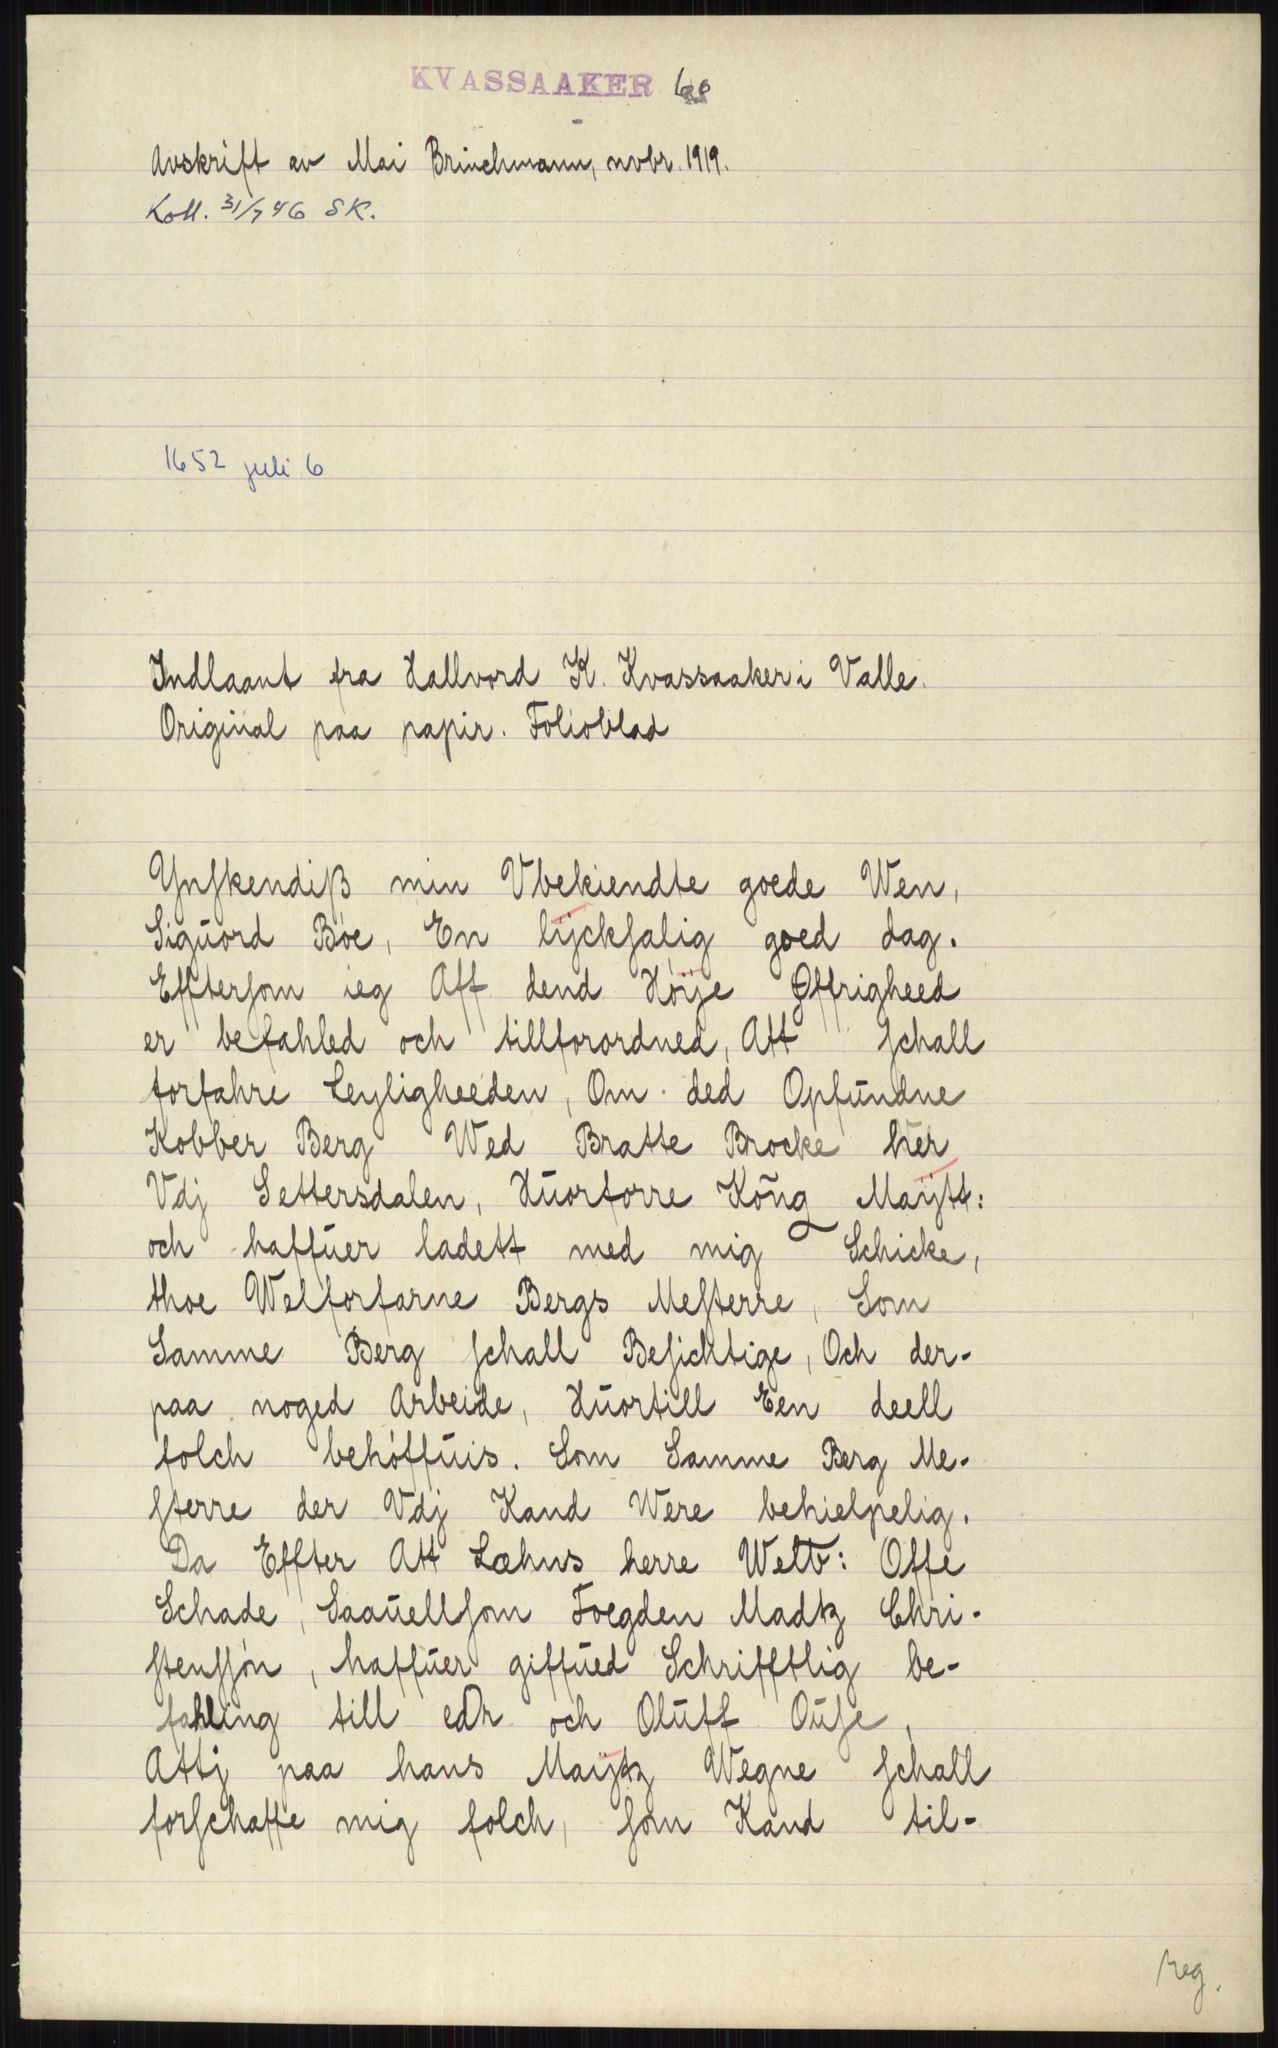 KVASSAAKER 60
Avskrift av Mai Brinchmann, novbr. 1919.
Koll. 31/7 46 SK.
1652 juli 6
Indlaant fra Hallvord K. Kvassaaker i Valle.
Original paa papir. Folioblad
Ynſkendiß min Vbekiendte goede Wen,
Siguord Bøe, En lÿckſalig goed dag.
Effterſom ieg Aff dend Höÿe Øffrigheed
er befahled och tillforordned, Att ſchall
forfahre Leyligheeden, Om ded Opfundne
Kobber Berg Wed Bratte Brocke her
Vdj Settersdalen, Huorforre Kong Maÿtt:
och haffuer ladett med mig Schicke,
thoe Welforfarne Bergs Meſterre, Som
Samme Berg ſchall Beſichtige, Och der-
paa noged Arbeide, Huortill Een deell
folch behöffuis. Som Samme Berg Me-
ſterre der Vdj Kand Were behielpelig.
Da Effter Att Læhns herre Welb: Offe
Schade, Saauellſom Foegden Madtz Chri-
ſtenſſön, haffuer giffued Schrifftlig be-
fahling till edr och Oluff Ouſe,
Attj paa hans Maÿtz Wegne ſchall
forſchaffe mig folch, ſom Kand til-
Reg.